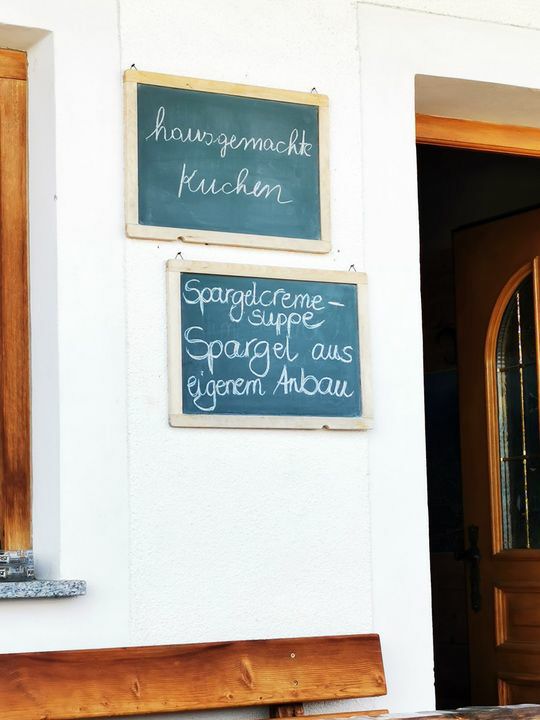 hausgemachte
Kuchen
Spargelcreme-
suppe
Spargel aus
eigenem Anbau